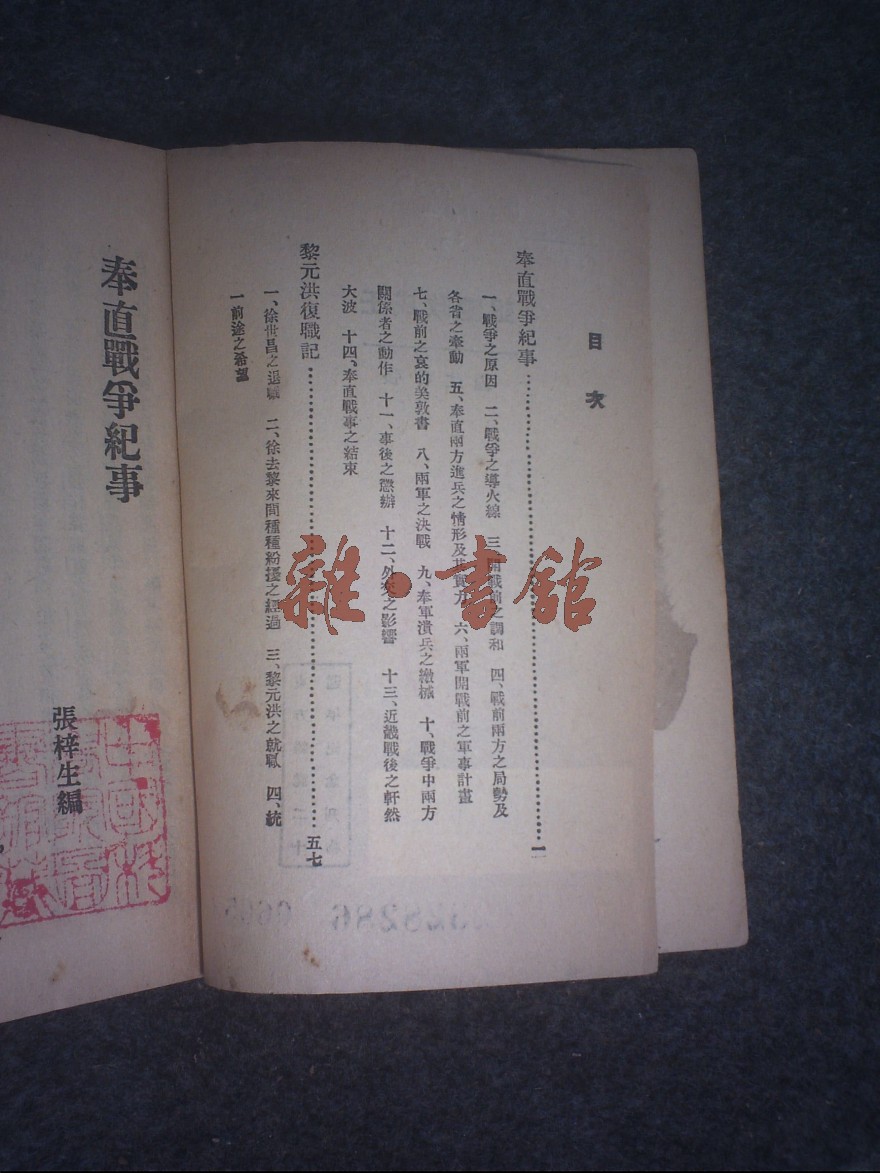 目次
奉直戰爭紀事……一
一、戰爭之原因 二、戰爭之導火線 三、開戰前之調和 四、戰前兩方之局勢及
各省之牽動 五、奉直兩方進兵之情形及其實力 六、兩軍開戰前之軍事計畫
七、戰前之哀的美敦書 八、兩軍之決戰 九、奉軍潰兵之繳械 十、戰爭中兩方
關係者之動作 十一、事後之懲辦 十二、外交之影響 十三、近畿戰後之軒然
大波 十四、奉直戰事之結束
黎元洪復職記……五七
一、徐世昌之退職 二、徐去黎來間種種紛擾之經過 三、黎元洪之就職 四、統
一前途之希望
奉直戰爭紀事
張梓生編
雜·書館